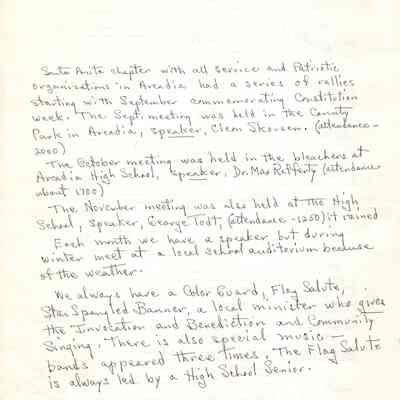 Santa Anita chapter with all service and Patriotic
organizations in Arcadia had a series of rallies
starting with September commemorating Constitution
week. The Sept. meeting was held in the County
Park in Arcadia, speaker, Cleon Skousen. (attendance -
2000)
The October meeting was held in the bleachers at
Arcadia High School, speaker, Dr. Max Rafferty (attendance
about 1700)
The November meeting was also held at the High
School, speaker, George Todt, (attendance - 1250) it rained
Each month we have a speaker but during
winter meet at a local school auditorium because
of the weather.
We always have a Color Guard, Flag Salute,
Star Spangled Banner, a local minister who gives
the Invocation and Benediction and Community
Singing. There is also special music -
bands appeared three times. The Flag Salute
is always led by a High School Senior.